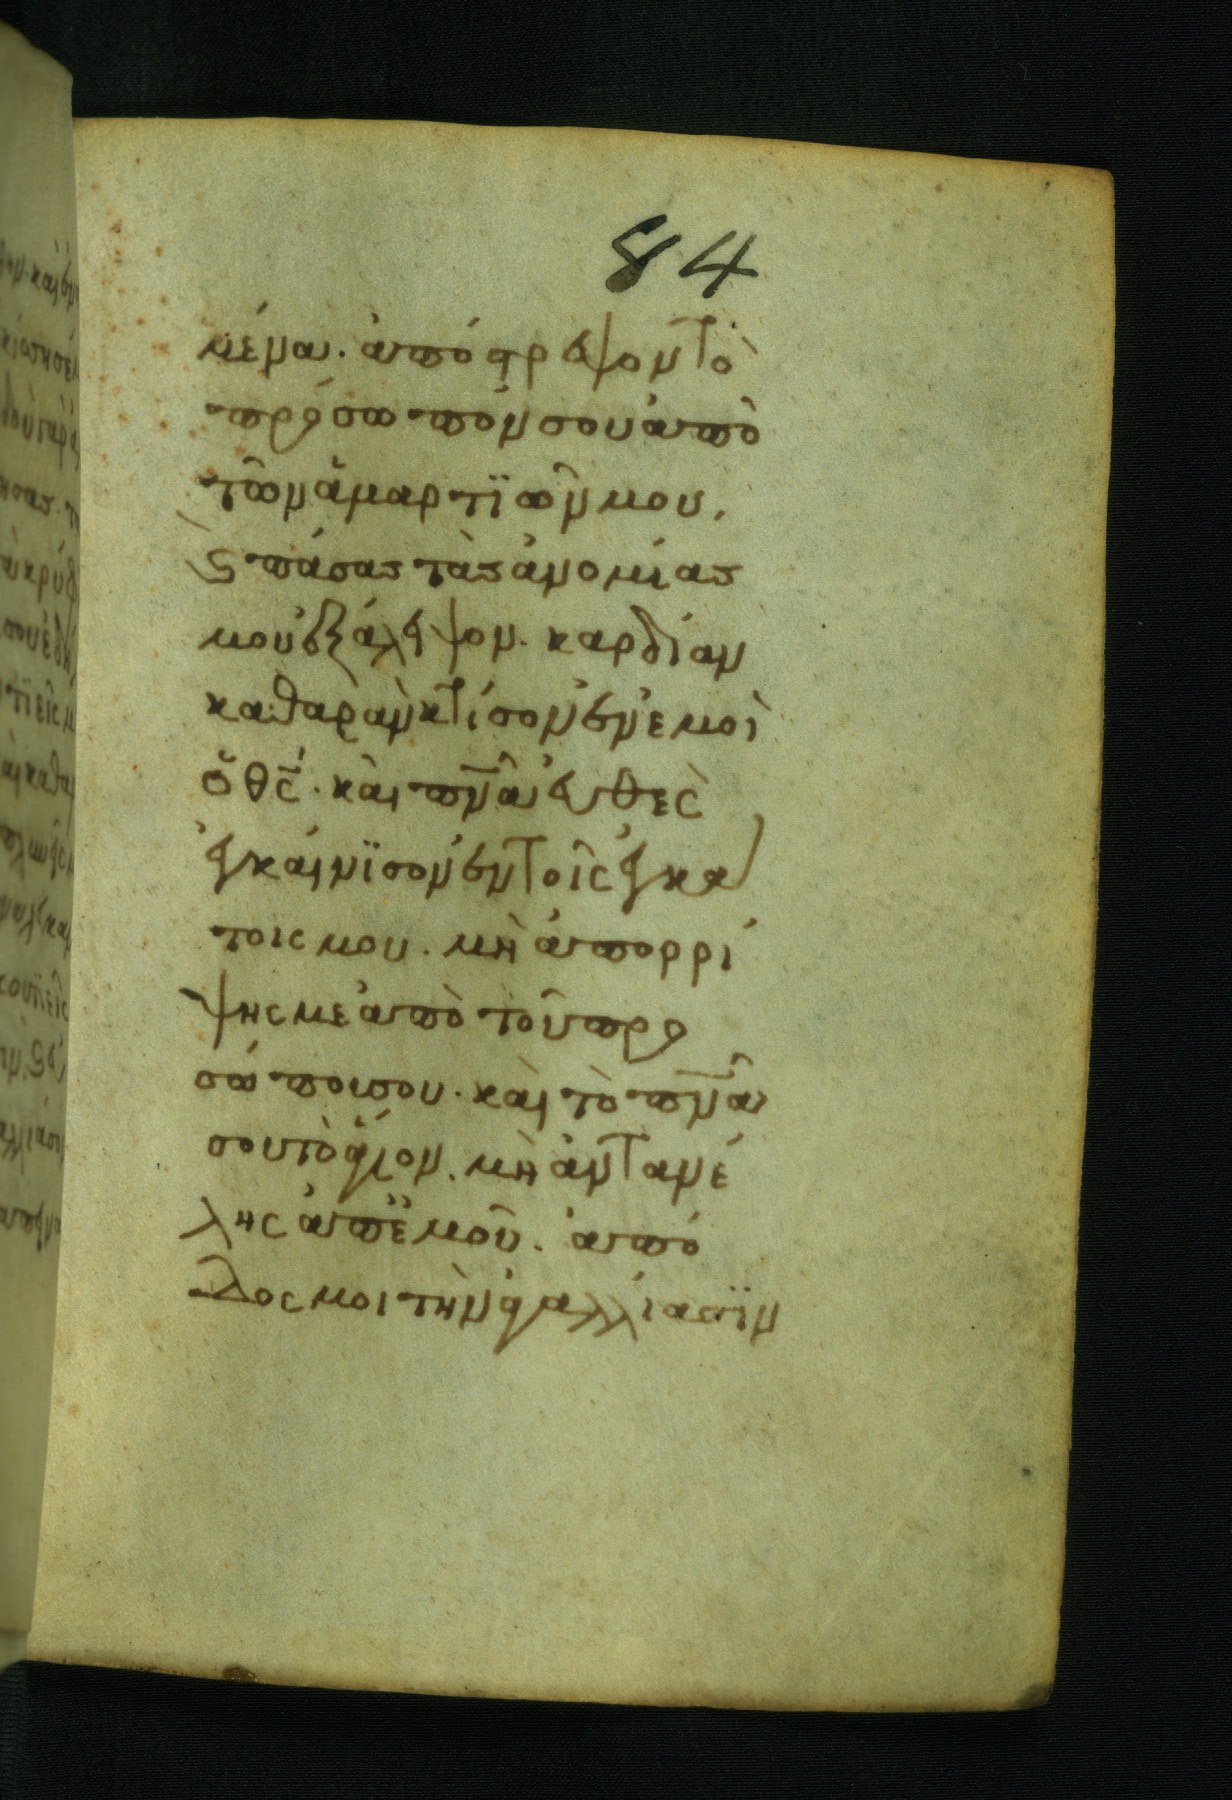 84
νέμα. ἀπόστρεψον τὸ
πρόσωπόν σου ἀπὸ
τῶν ἁμαρτϊῶν μου,
ϛ πάσας τὰς ἀνομίας
μου ἐξάλειψον. καρδίαν
καθαρὰν κτίσον ἐν ἐμοὶ
ὁ θς. καὶ πνα εὐθὲς
ἐγκαίνϊσον ἐν τοῖς ἐγκα
τοις μου. μὴ ἀπορρί
ψης με ἀπὸ τοῦ προ
σώπου σου. καὶ τὸ πνα
σου τὸ ἅγιον. μὴ ἀντανέ
λης ἀπ ἐμοῦ. ἀπό
δος μοι τὴν ἀγαλλίασϊν